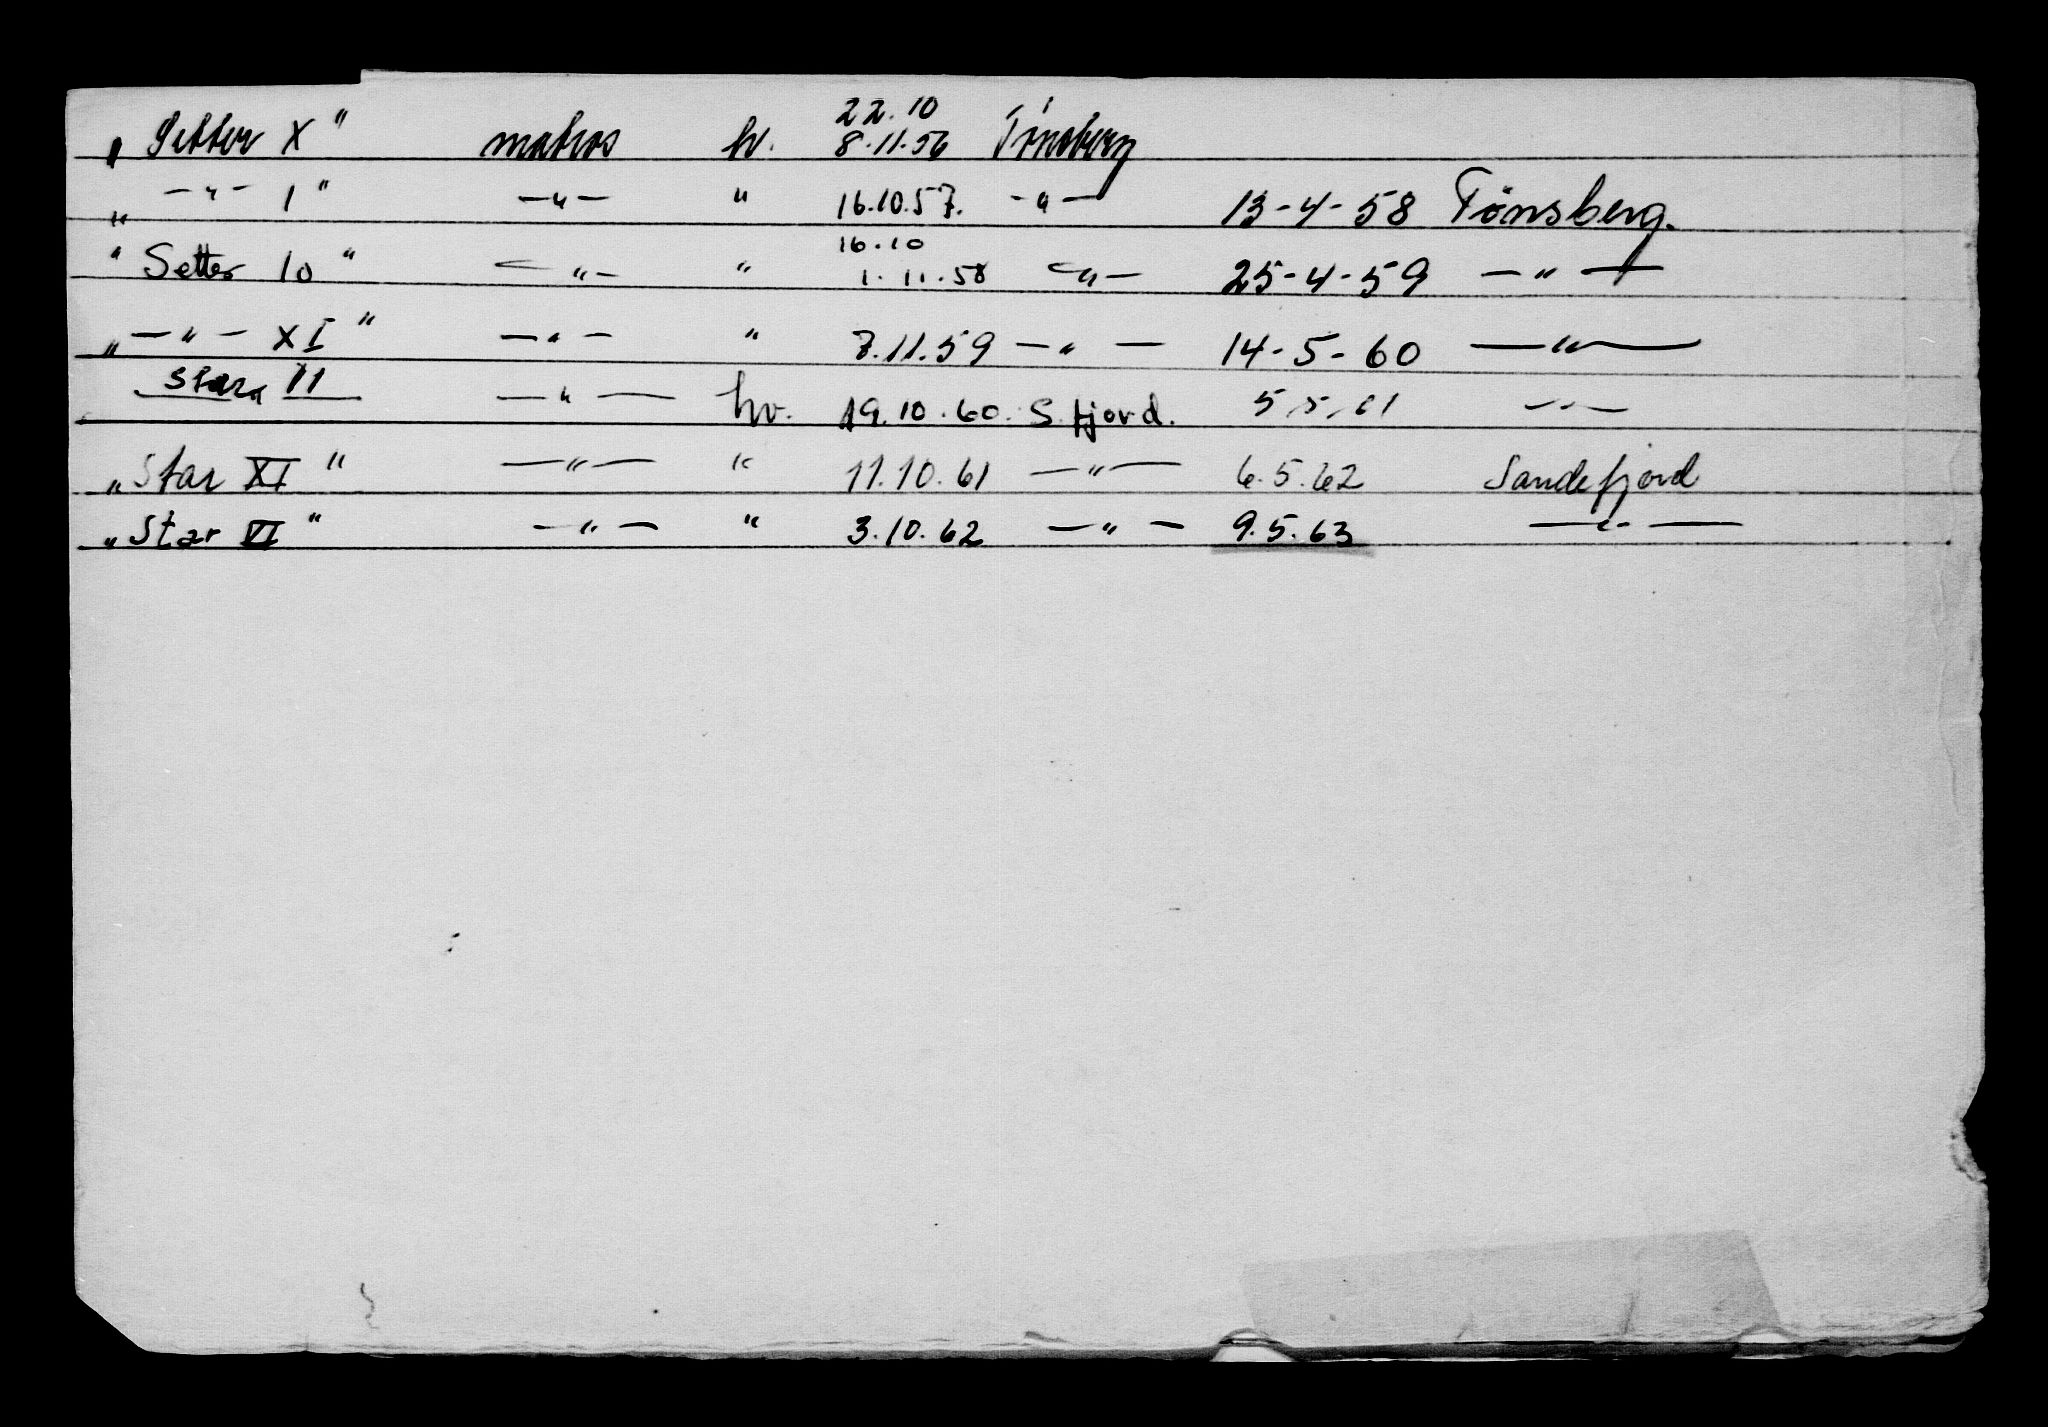 22.10
„ Setter X " matros hv. 8.11.56 Tønsberg
„ —"— 1 " —"— " 16.10.57. —"— 13-4-58 Tønsberg.
16.10
" Setter 10 " —"— " 1.11.58 —"— 25-4-59 —"—
„ —"— XI " —"— " 7.11.59 —"— 14-5-60 —"—
11 —"— hv. 19.10.60. S.fjord. 5.5.61 —"—
„ Star XI " —"— " 11.10.61 —"— 6.5.62 Sandefjord
„ Star VI " —"— " 3.10.62 —"— 9.5.63 —"—